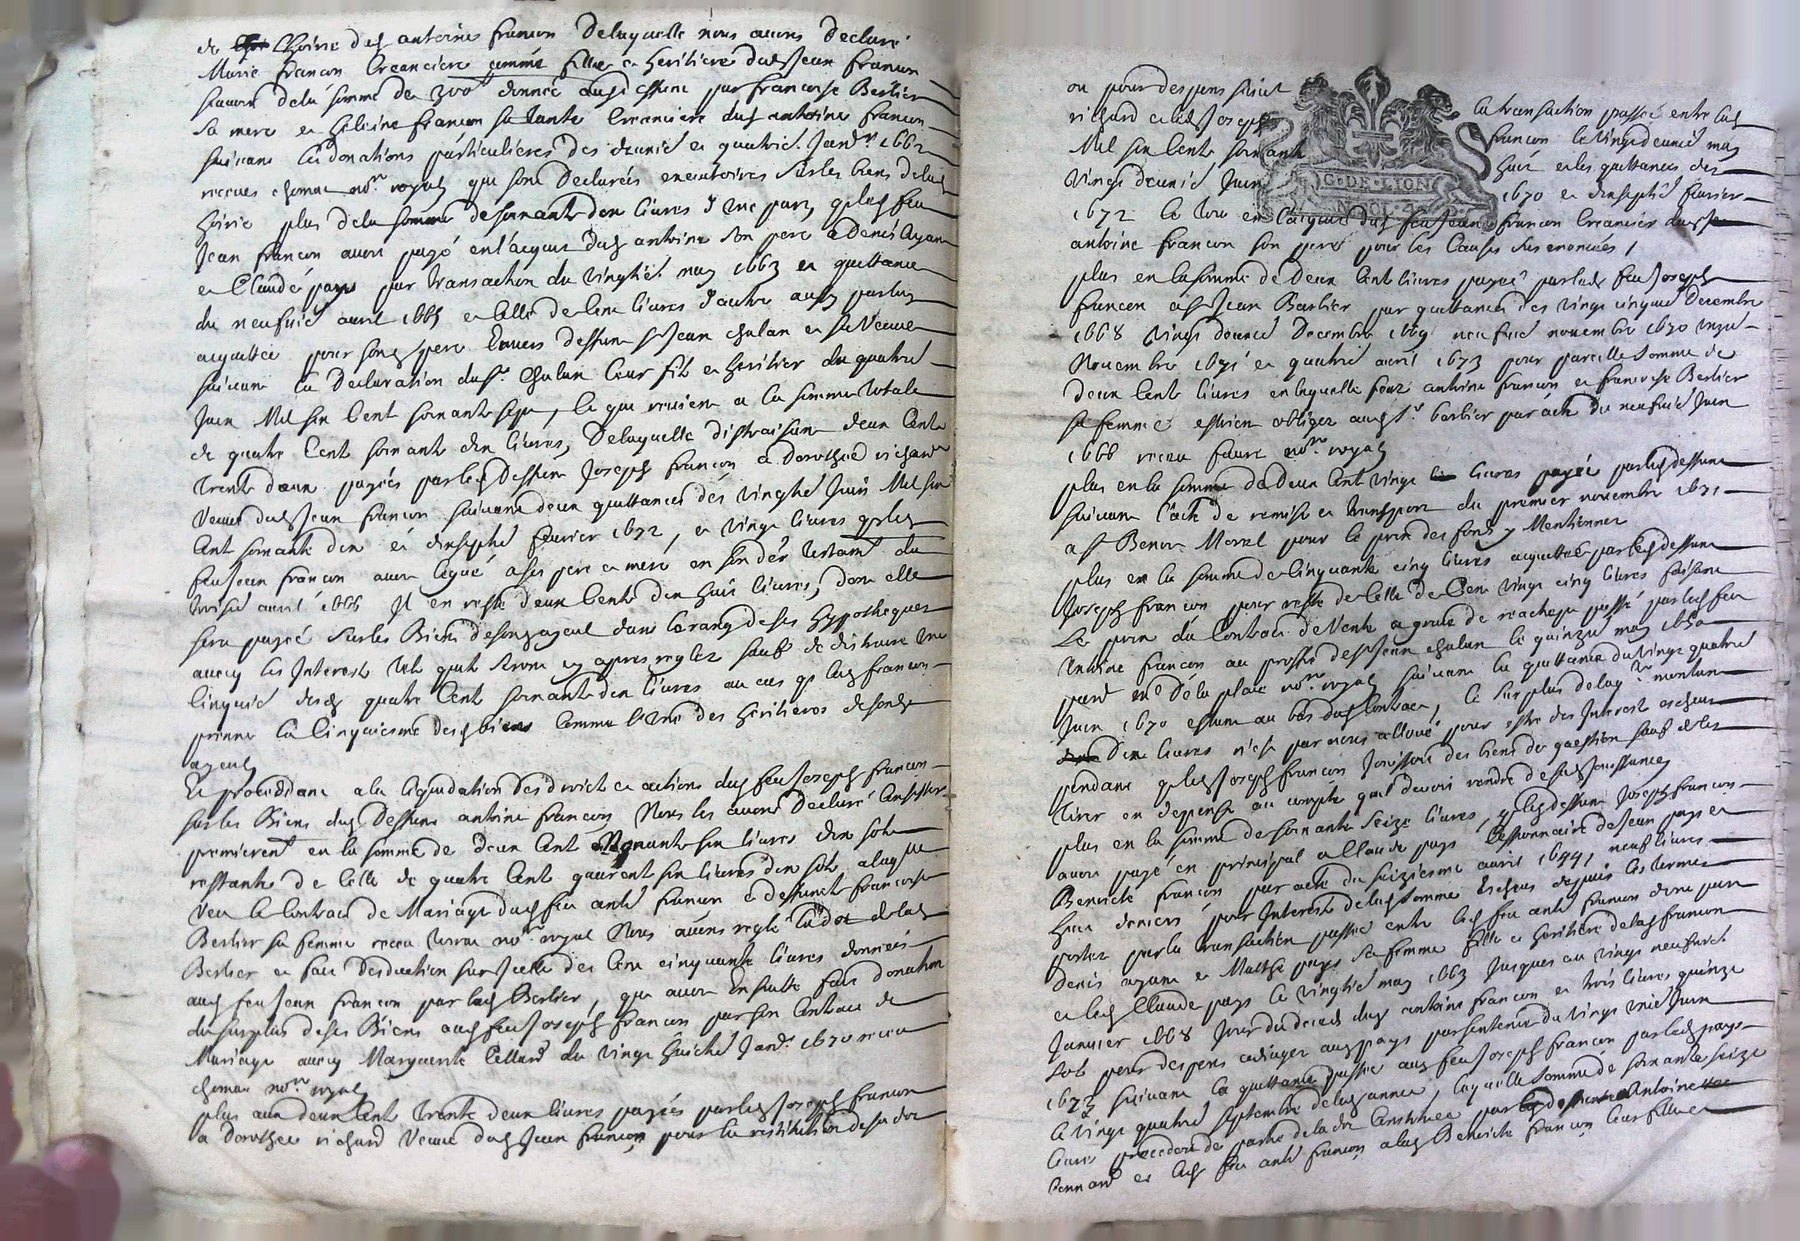 de hoirie dud antoine francon De laquelle nous avons Declaré
Marie francon Creanciere comme fille et heritiere dud Jean francon
scavoir de la somme de 300# donnée aud deffunt par francoise Berlier
sa mere et francon sa tante Creanciere dud antoine francon
suivant les donations particulieres des et quatrie. Janr. 1662
receues nore. royal qui sont Declarés executoires sur les biens de lad
hoirie plus de la somme de soixante dix livres d'une part, q led feu
Jean francon avoit payé en l'acquit dud antoine son pere a Denis ayam
et Claude pays par transaction du vingtie. may 1663 et quittance
du neufvie avril 1665 et celle de cent livres d'autre aussy par luy
acquittee pour sond pere Envers deffunt sr Jean chalan et sa Veuve
suivant la declaration du sr. chalan leur fils et heritier du quatrie
Juin Mil six Cent soixante sept, ce qui revient a la somme totale
de quatre Cent soixante dix livres, De laquelle distraisant deux Cent
trente deux payées par led deffunt Joseph francon a Dorothée richard
Veuve dud Jean francon suivant deux quittances des vingtie Juin Mil six
Cent soixante dix et dixseptie fevrier 1672, et vingt livres q led
feu Jean francon avoit legué a ses pere et mere en son der testamt. du
avril 1666 Il en reste deux Cents dix huit livres, dont elle
sera payée sur les Biens de son ayeul dans le rang de ses hypotheques
avecq les Interests tels quils seront cy apres reglés sauf de distraire une
Cinquie desd quatre Cent soixante dix livres au cas q lad francon
prenne la Cinquiesme desd biens Comme l'une des heritieres de sond
ayeul
Et procedant a la liquidation des droits et actions dud feu Joseph francon
sur les Biens dud Deffunt antoine francon Nous les avons Declaré Consister
premieremt en la somme de deux Cent six livres dix sols
restante de Celle de quatre Cent quarent six livres dix sols a laq
veu le Contract de Mariage dud feu ant francon et deffuncte francoise
Berlier sa femme receu nore. royal Nous avons reglé la dot de lad
Berlier et fait desduction sur Icelle des Cent cinquante livres données
aud feu Jean francon par lad Berlier, qui avoit Ensuitte fait donation
du surplus de ses Biens aud feu Joseph francon par son Contract de
Mariage avecq Marguerite Cellard du vingt huictie Janr. 1670 receu
nore. royal
plus aux deux Cent trente deux livres payées par led Joseph francon
a Dorothee richard Veuve dud Jean francon pour la restitution de sa dot
ou pour despens suivt la transaction passé entre lad
richard et led Joseph francon le vingt deuxie may
Mil six Cents soixante huit et les quittances des
vingt deuxie Juin 1670 et dixseptie fevrier
1672 le tout en l'acquit dud feu Jean francon Creancier dud feu
antoine francon son pere pour les Causes sus enoncees /
plus en la somme de Deux Cent livres payée par led feu Joseph
francon a sr Jean Barbier par quittances des vingt cinquie Decembre
1668 vingt deuxie Decembre 1669 neufvie novembre 1670
Novembre 1671 et quatrie avril 1673 pour pareille somme de
deux Cents livres en laquelle feux antoine francon et francoise Berlier
sa femme estoient obligez aud sr. barbier par acte du neufvie Juin
1666 receu faure nore. royal
plus en la somme de Deux Cent vingt livres payée par led deffunt
suivant l'acte de remise et transport du premier novembre 1671
a sr Benoit Morel pour le prix des fonds y Mentionnez
plus en la somme de Cinquante cinq livres acquittée par led deffunt
Joseph francon pour reste de Celle de Cent vingt cinq livres faisant
Le prix du Contract de Vente a grace de reachept passé par led feu
Antoine francon au proffit de sr Jean chalan le quinzie may 1650
pard me De la place nore. royal suivant la quittance du vingt quatrie
Juin 1670 estant au bas dud Contract, le surplus de laqe. montant
dix livres n'est par nous alloué pour estre des Interests escheus
pendant q led Joseph francon Jouissoit des biens de question sauf de les
tirer en despense au compte quil devoit rendre de sesd Jouissances
plus en la somme de soixante seize livres, q led deffunt Joseph francon
avoit payé en principal a Claude pays Cessionnaire de Jean pays et
Benoite francon par acte du seiziesme avril 1644, neuf livres
huit deniers pour Interests de lad somme Escheus depuis les termes
portez par la transaction passée entre led feu ant francon d'une part
Denis ayam et Marthe pays sa femme fille et heritiere de lad francon
et led Claude pays le vingtie may 1663 Jusques au vingt neufvie
Janvier 1668 Jour du deceds dud antoine francon et trois livres quinze
sols pour despens adjugez aud pays par sentence du vingt unie Juin
1673 suivant la quittance passée aud feu Joseph francon par led pays
le vingt quatrie septembre de lad annee, laquelle somme de soixante seize
livres procedoit de partie de la dot Constituee par Antoinette
bennard et led feu ant francon a lad Benoite francon leur fille
G.DE.LION